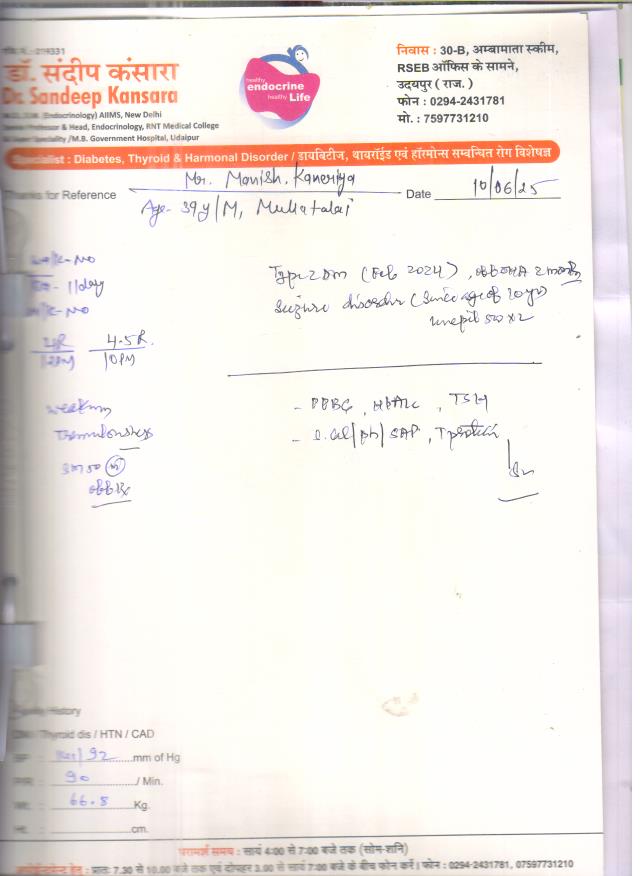 रजि. नं.-019331
डॉ. संदीप कंसारा
Dr. Sandeep Kansara
(Endocrinology) AIIMS, New Delhi
Professor & Head, Endocrinology, RNT Medical College
Speciality /M.B. Government Hospital, Udaipur
healthy
endocrine
healthy Life
निवास : 30-B, अम्बामाता स्कीम,
RSEB ऑफिस के सामने,
उदयपुर ( राज. )
फोन : 0294-2431781
मो. : 7597731210
Specialist : Diabetes, Thyroid & Harmonal Disorder / डायबिटीज, थायरॉईड एवं हॉरमोन्स सम्बन्धित रोग विशेषज्ञ
Thanks for Reference Mr. Manish. Kaneriya Date 10/06/25
Age- 39y/M,
-NO
- 1/day
-NO
4.5R.
12PM 10PM
Type 2 DM (Feb 2024), off OHA 2 month
Seizure disorder (Since age of 20 yr)
500 x 2
weakness
Tremulousness
- PPBG, HbA1c, TSH
- S. cal/ph/SAP, T protein
off Rx
Family History
DM / Thyroid dis / HTN / CAD
BP : /92 mm of Hg
P/R : 90 / Min.
Wt. : 66.8 Kg.
Ht. : cm.
परामर्श समय : सायं 4:00 से 7:00 बजे तक (सोम-शनि)
अपोईन्टमेन्ट हेतु : प्रातः 7.30 से 10.00 बजे तक एवं दोपहर 3.00 से सायं 7:00 बजे के बीच फोन करें। फोन : 0294-2431781, 07597731210